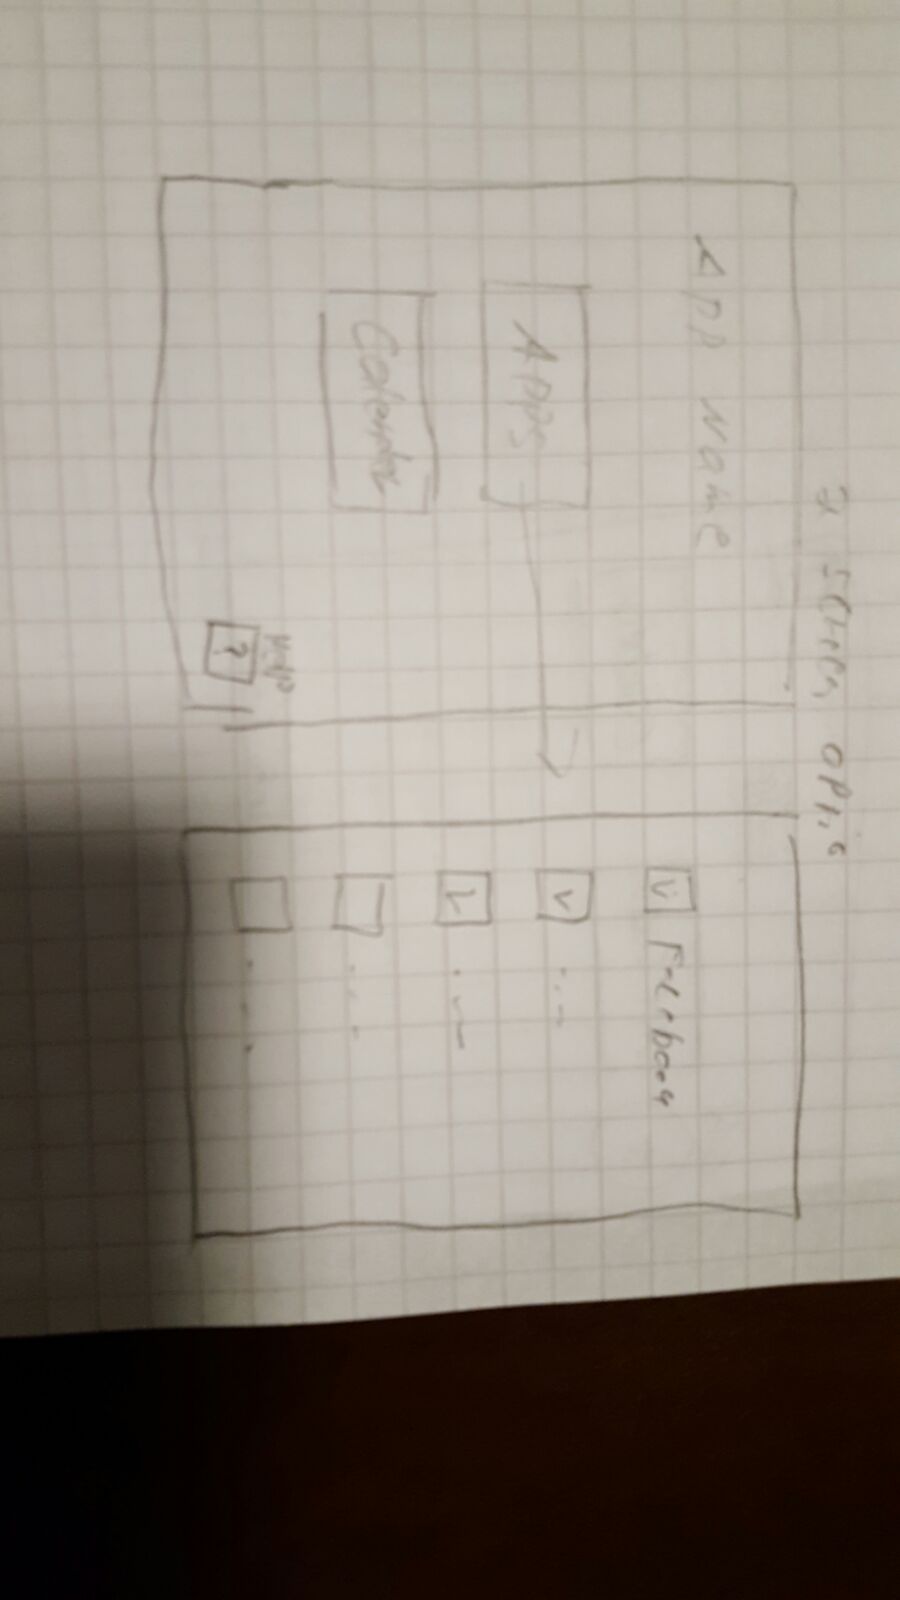 2 screen
App Name
Apps
Calendar
Help
?
Facebook